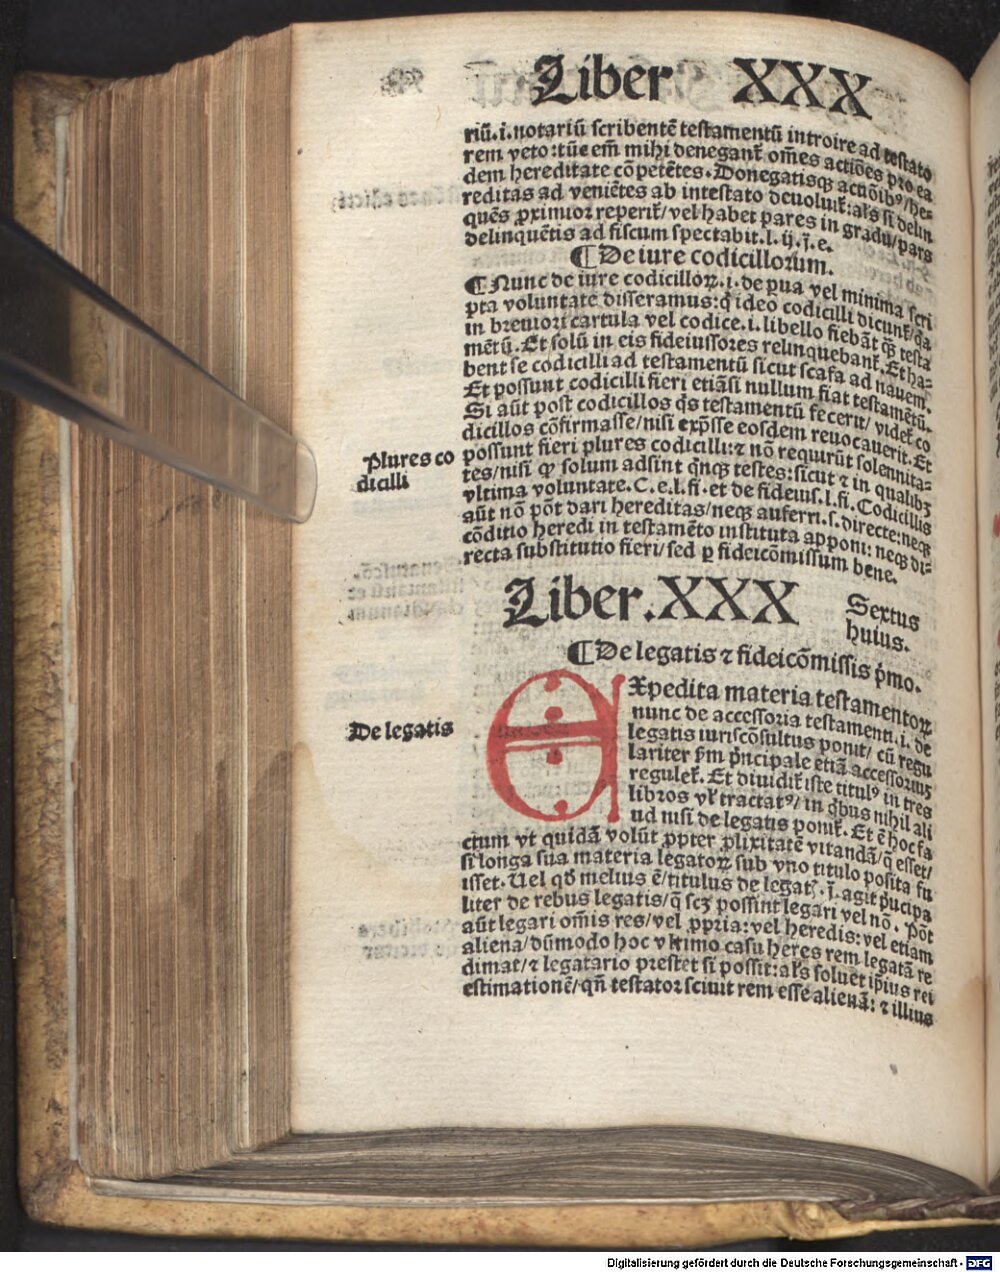 Liber XXX
riū.i.notariū scribentē testamentū introire ad testato
rem veto:tūc em̄ mihi denegant̄ om̄es actiōes pro ea
dem hereditate cōpetētes. Donegatisqꝫ actiōibꝰ/he⸗
reditas ad veniētes ab intestato deuoluit̄:al's si delin
quēs ꝓximior reperit̄/vel habet pares in gradu/pars
delinquētis ad fiscum spectabit.l.ij.j̄.e.
¶ De iure codicillorum.
¶ Nunc de iure codicilloꝝ.i.de ꝑua vel minima scri
pta voluntate disseramus:q̄ ideo codicilli dicunt̄/q̄a
in breuiori cartula vel codice.i.libello fiebāt qꝫ testa
mētū. Et solū in eis fideiussores relinquebant̄. Et ha⸗
bent se codicilli ad testamentū sicut scafa ad nauem.
Et possunt codicilli fieri etiāsi nullum fiat testamētū.
Si aūt post codicillos q̄s testamentū fecerit/videt̄ co
dicillos cōfirmasse/nisi exp̄sse eosdem reuocauerit. Et
Plures co
dicilli
possunt fieri plures codicilli:⁊ nō requirūt solennita⸗
tes/nisi ꝙ solum adsint q̄nqꝫ testes:sicut ⁊ in qualibꝫ
vltima voluntate. C.e.l.fi.et de fideius.l.fi. Codicillis
aūt nō pōt dari hereditas/neqꝫ auferri.s.directe:neqꝫ
cōditio heredi in testamēto instituta apponi: neqꝫ di⸗
recta substitutio fieri/sed ꝑ fideicōmissum bene.
Liber.XXX
Sextus
huius.
¶ De legatis ⁊ fideicōmissis p̄mo.
De legatis
EXpedita materia testamentoꝝ
nunc de accessoria testamenti.i.de
legatis iuriscōsultus ponit/ cū regu
lariter s̄m p̄ncipale etiā accessoriuꝫ
regulet̄. Et diuidit̄ iste titulꝰ in tres
libros vl' tractatꝰ/ in q̄bus nihil ali
ud nisi de legatis ponit̄. Et ē hoc fa
ctum vt quidā volūt ꝓpter ꝓlixitatē vitandā/q̄ esset/
si longa sua materia legatoꝝ sub vno titulo posita fu
isset. Uel qd̄ melius ē/titulus de legat̄.j̄.agit p̄ncipa
liter de rebus legatis/q̄ scꝫ possint legari vel nō. Pōt
aūt legari om̄is res/vel ꝓpria:vel heredis:vel etiam
aliena/dūmodo hoc vltimo casu heres rem legatā re
dimat/⁊ legatario prestet si possit:al's soluet ip̄ius rei
estimationē/qn̄ testator sciuit rem esse alienā: ⁊ illius
Digitalisierung gefördert durch die Deutsche Forschungsgemeinschaft - DFG